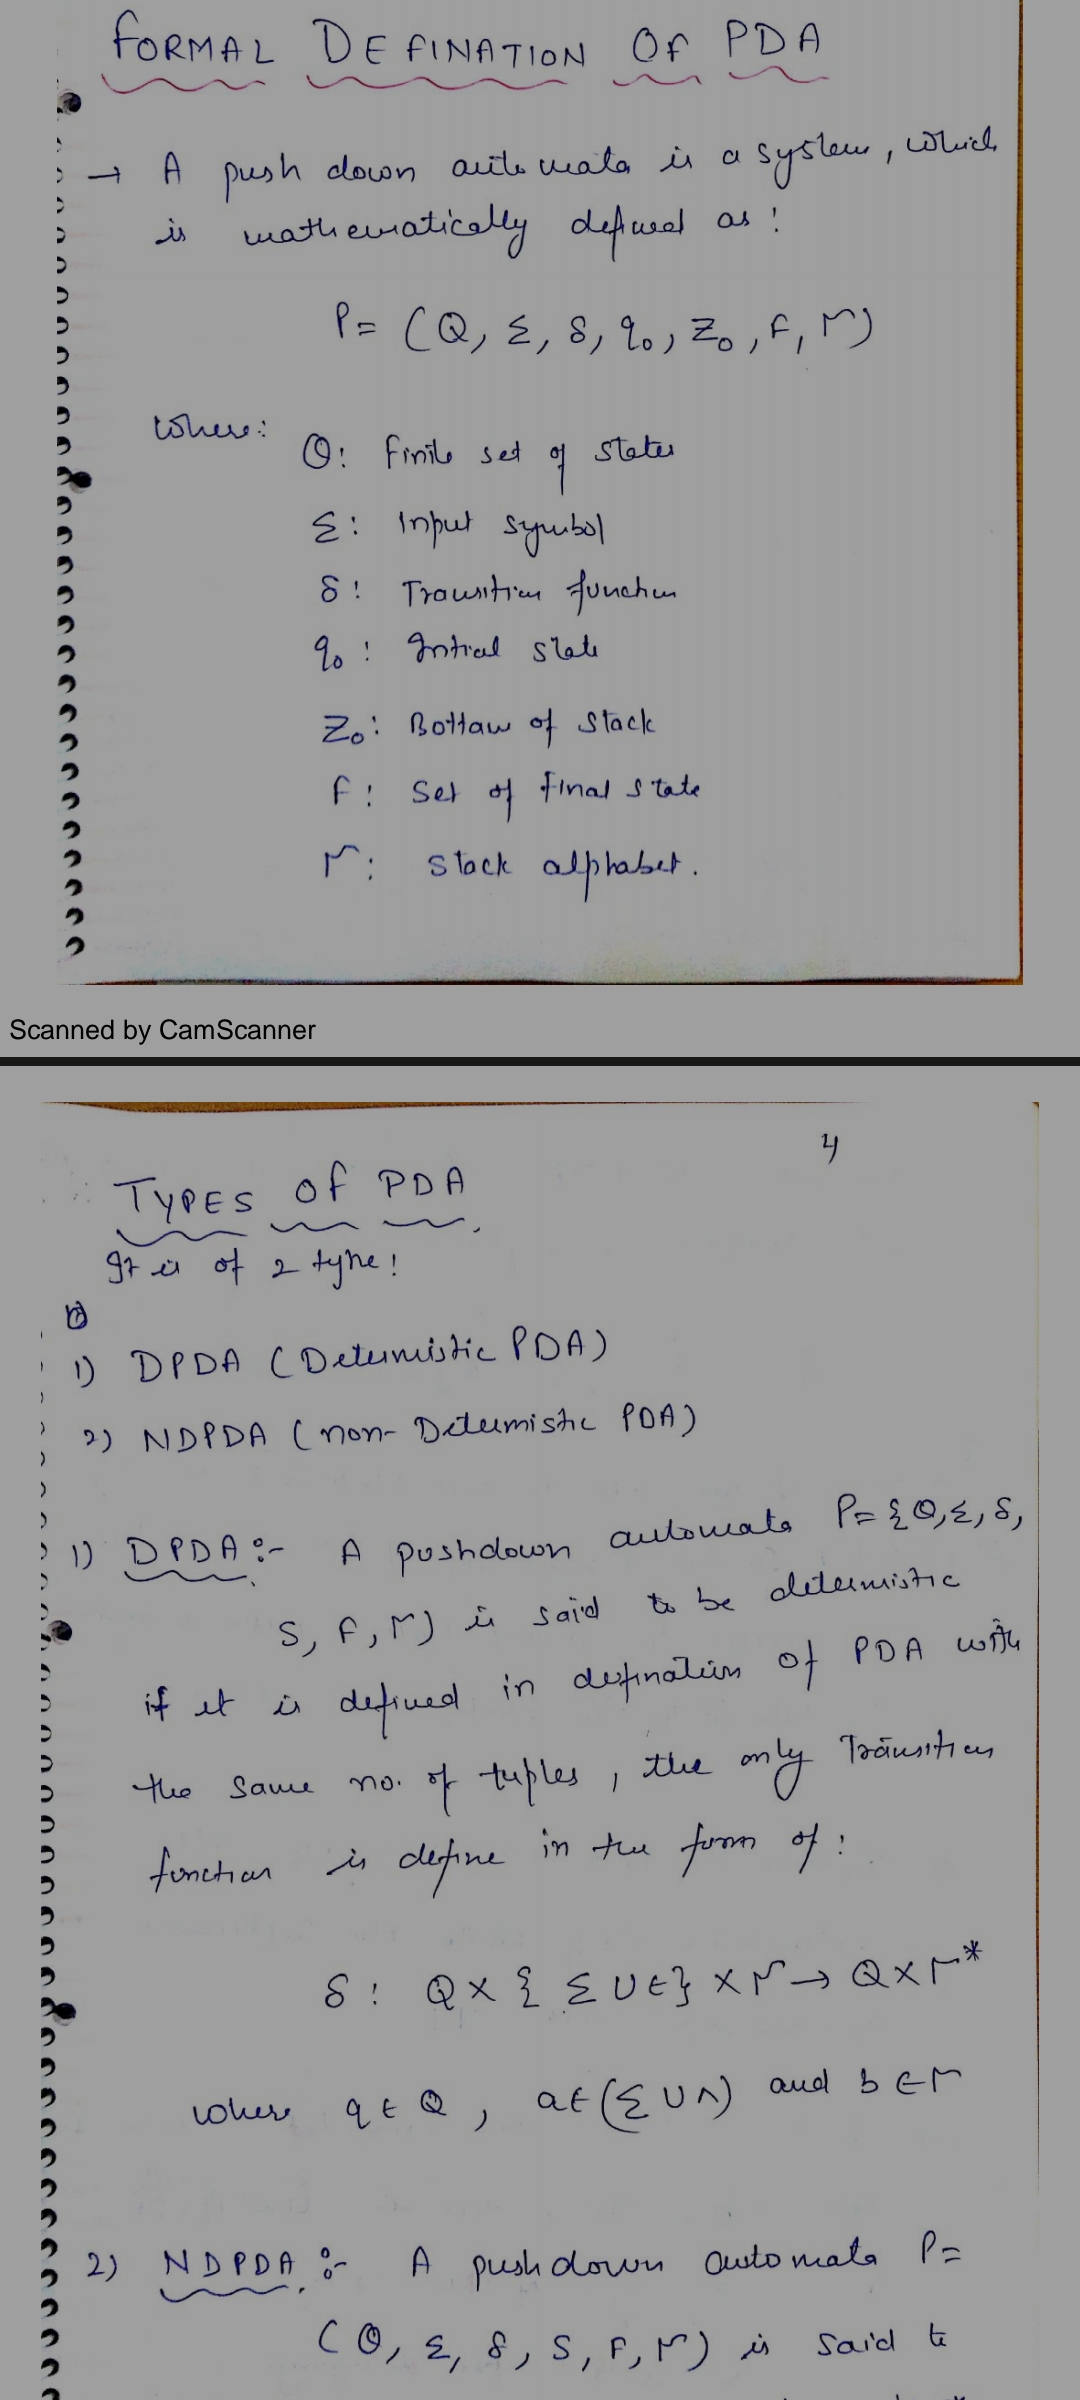 FORMAL DEFINATION OF PDA
→ A push down automata is a system, which
is mathematically defined as :
P = (Q, Σ, δ, q₀, Z₀, F, Γ)
Where:
Q: Finite set of states
Σ: Input symbol
δ: Transition function
q₀: Initial state
Z₀: Bottom of stack
F: Set of final state
Γ: Stack alphabet.
Scanned by CamScanner
4
TYPES OF PDA
It is of 2 type:
1) DPDA (Determistic PDA)
2) NDPDA (non-Determistic PDA)
1) DPDA :- A pushdown automata P = {Q, Σ, δ,
S, F, Γ) is said to be determistic
if it is defined in defination of PDA with
the same no. of tuples, the only Transition
function is define in the form of :
δ : Q × { Σ ∪ ∈} × Γ → Q × Γ*
where q ∈ Q , a ∈ (Σ ∪ ∧) and b ∈ Γ
2) NDPDA :- A pushdown automata P =
(Q, Σ, δ, S, F, Γ) is said to